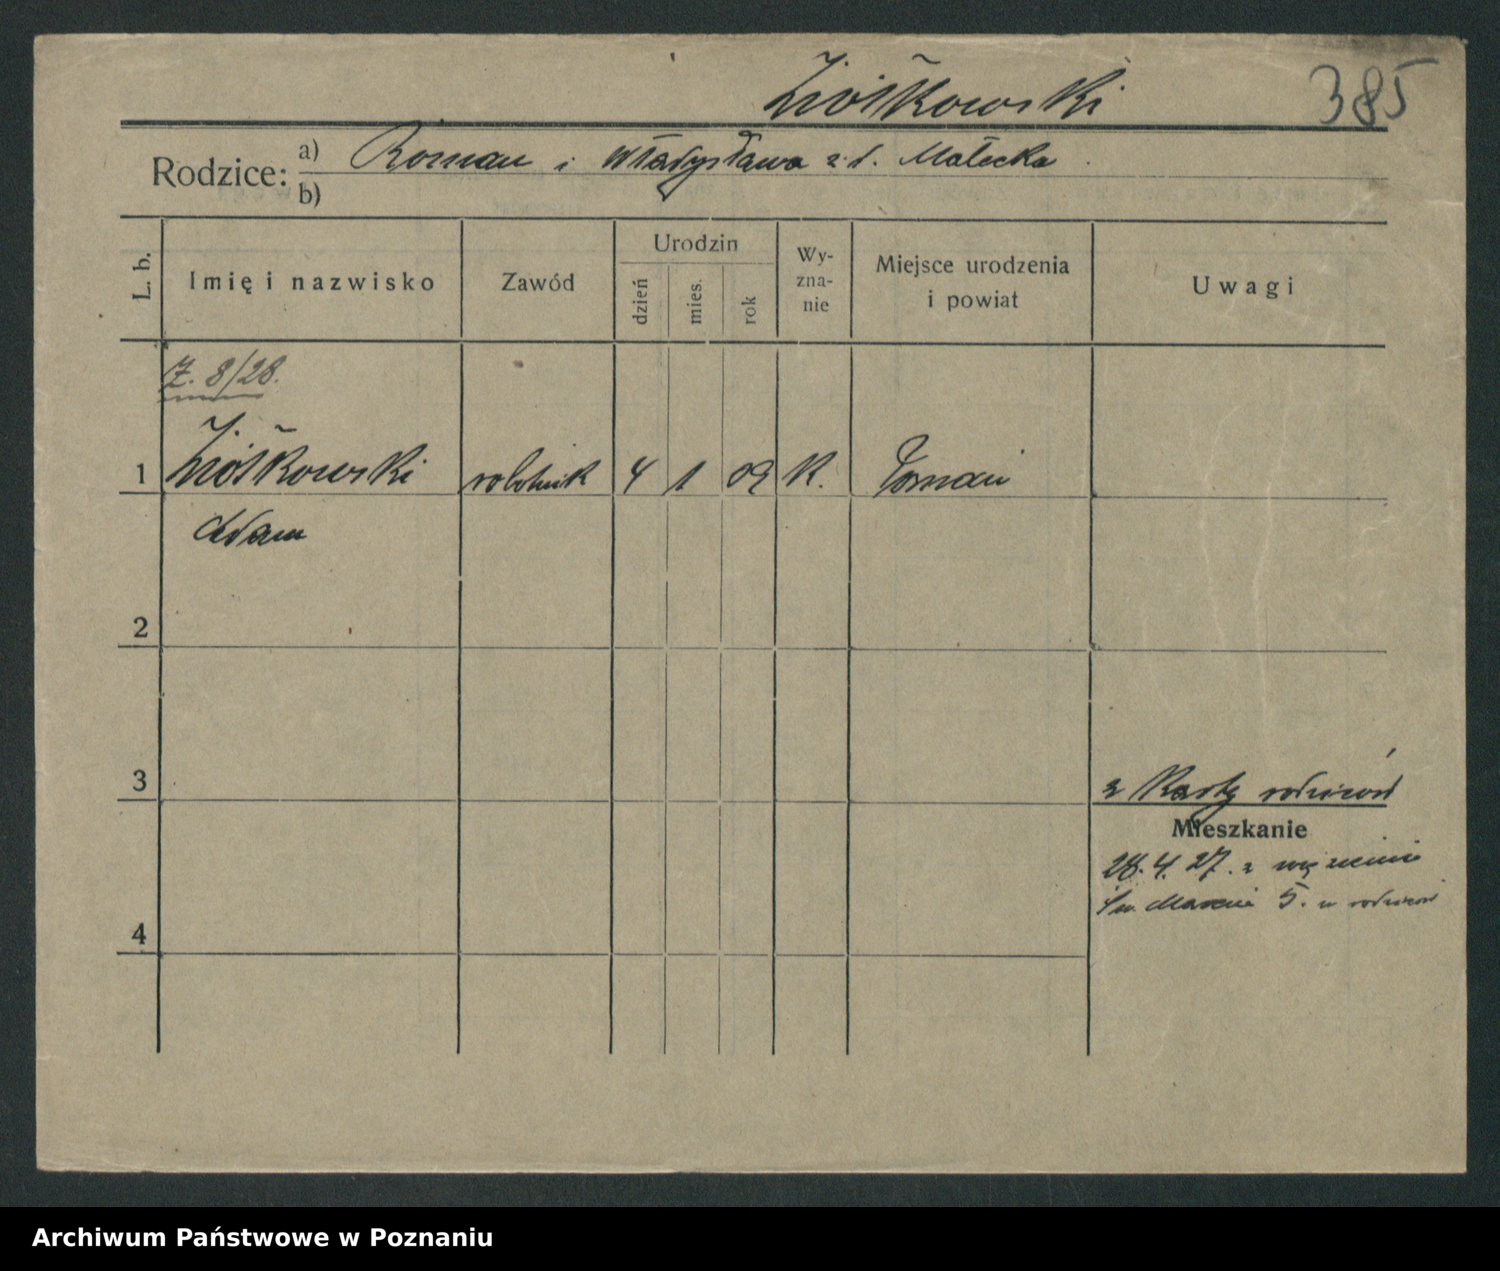 Ziółkowski 385
Rodzice: a) Roman i Władysława z d. Małecka
b)
L. b. Imię i nazwisko Zawód Urodzin dzień mies. rok Wyznanie Miejsce urodzenia i powiat Uwagi
Z. 8/28.
1 Ziółkowski robotnik 4 1 09 K. Poznań
Adam
2
3
z Karty rodziców
Mieszkanie
28.4.27. z więzienia
Św. Marcin 5. u rodziców
4
Archiwum Państwowe w Poznaniu